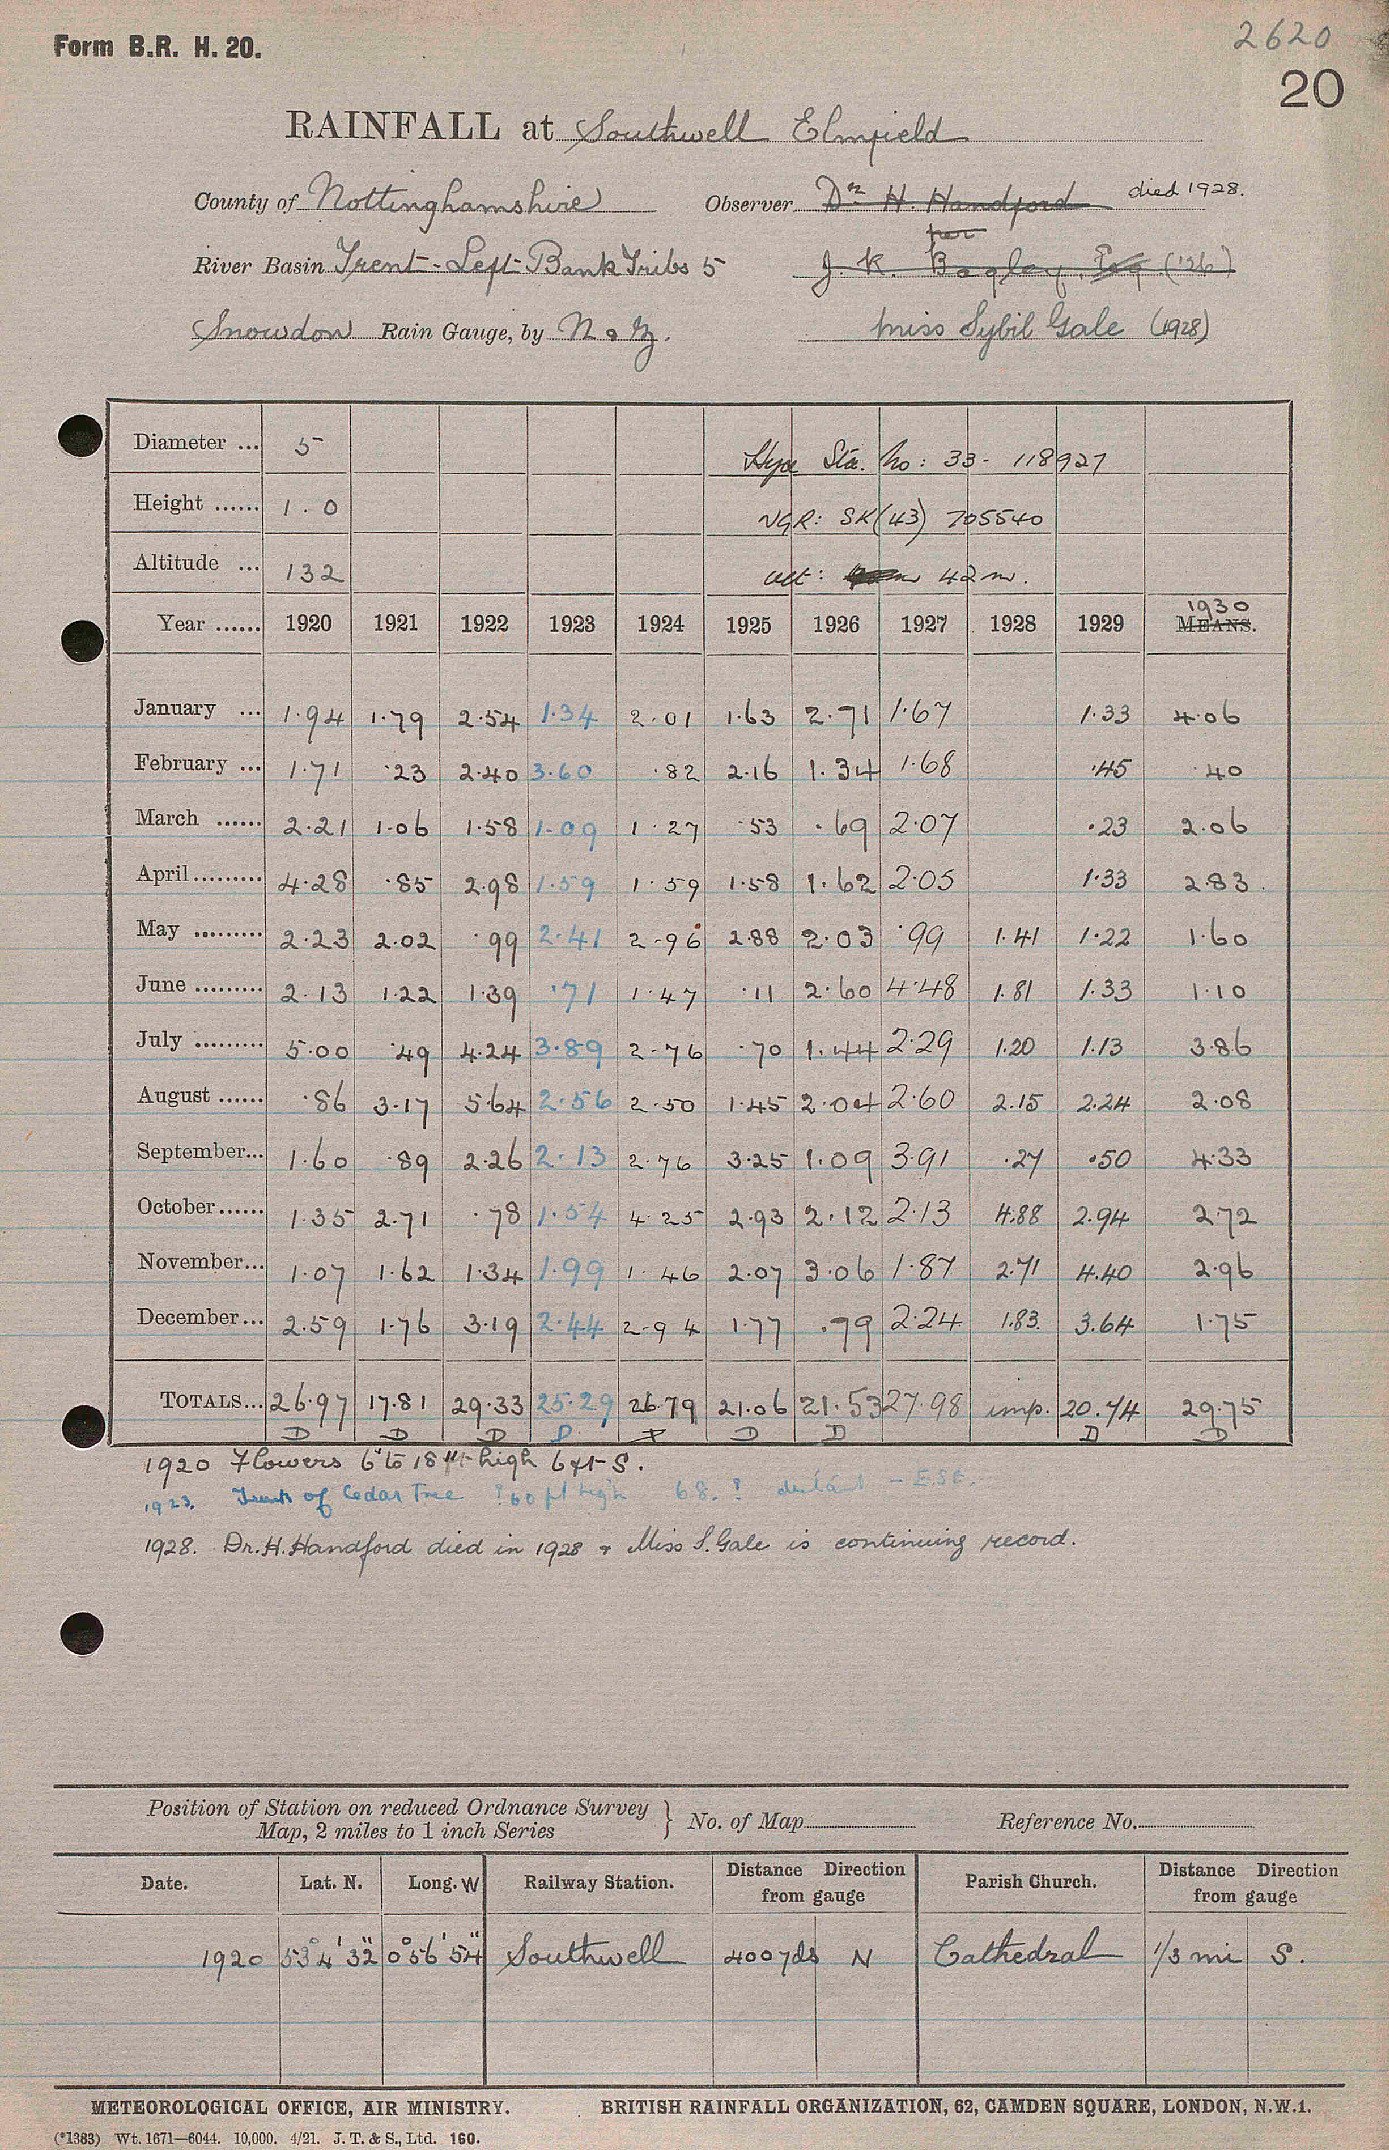 Form B.R. H. 20.
2620
20
RAINFALL at Southwell Elmfield
County of Nottinghamshire Observer Dr H. Handford died 1928.
per
River Basin Trent - Left Bank Tribs 5 J. K. Bagley, Esq. ('26)
Snowdon Rain Gauge, by N & Z. Miss Sybil Gale (1928)
Diameter ... 5
Sta. no: 33 - 118927
Height ...... 1.0
NGR: SK(43) 705540
Altitude ... 132
alt: 42m.
Year ...... 1920 1921 1922 1923 1924 1925 1926 1927 1928 1929 1930 MEANS.
January ... 1.94 1.79 2.54 1.34 2.01 1.63 2.71 1.67 1.33 4.06
February ... 1.71 .23 2.40 3.60 .82 2.16 1.34 1.68 .45 .40
March ...... 2.21 1.06 1.58 1.09 1.27 .53 .69 2.07 .23 2.06
April ......... 4.28 .85 2.98 1.59 1.59 1.58 1.62 2.05 1.33 2.83
May ......... 2.23 2.02 .99 2.41 2.96 2.88 2.03 .99 1.41 1.22 1.60
June ......... 2.13 1.22 1.39 .71 1.47 .11 2.60 4.48 1.81 1.33 1.10
July ......... 5.00 .49 4.24 3.89 2.76 .70 1.44 2.29 1.20 1.13 3.86
August ...... .86 3.17 5.64 2.56 2.50 1.45 2.04 2.60 2.15 2.24 2.08
September... 1.60 .89 2.26 2.13 2.76 3.25 1.09 3.91 .27 .50 4.33
October...... 1.35 2.71 .78 1.54 4.25 2.93 2.12 2.13 4.88 2.94 2.72
November... 1.07 1.62 1.34 1.99 1.46 2.07 3.06 1.87 2.71 4.40 2.96
December... 2.59 1.76 3.19 2.44 2.94 1.77 .79 2.24 1.83 3.64 1.75
TOTALS... 26.97 17.81 29.33 25.29 26.79 21.06 21.53 27.98 imp. 20.74 29.75
D D D D D D D D
1920 Flowers 6" to 18" high 6 ft S.
1923. Trunk of Cedar Tree ? 60 ft high 68. ? distant - E.S.E.
1928. Dr. H. Handford died in 1928 & Miss S. Gale is continuing record.
Position of Station on reduced Ordnance Survey Map, 2 miles to 1 inch Series } No. of Map Reference No.
Date. Lat. N. Long. W Railway Station. Distance Direction from gauge Parish Church. Distance Direction from gauge
1920 53° 4' 32" 0° 56' 54" Southwell 400 yds N Cathedral 1/3 mi S.
METEOROLOGICAL OFFICE, AIR MINISTRY. BRITISH RAINFALL ORGANIZATION, 62, CAMDEN SQUARE, LONDON, N.W.1.
(*1383) Wt. 1671—6044. 10,000. 4/21. J. T. & S., Ltd. 160.